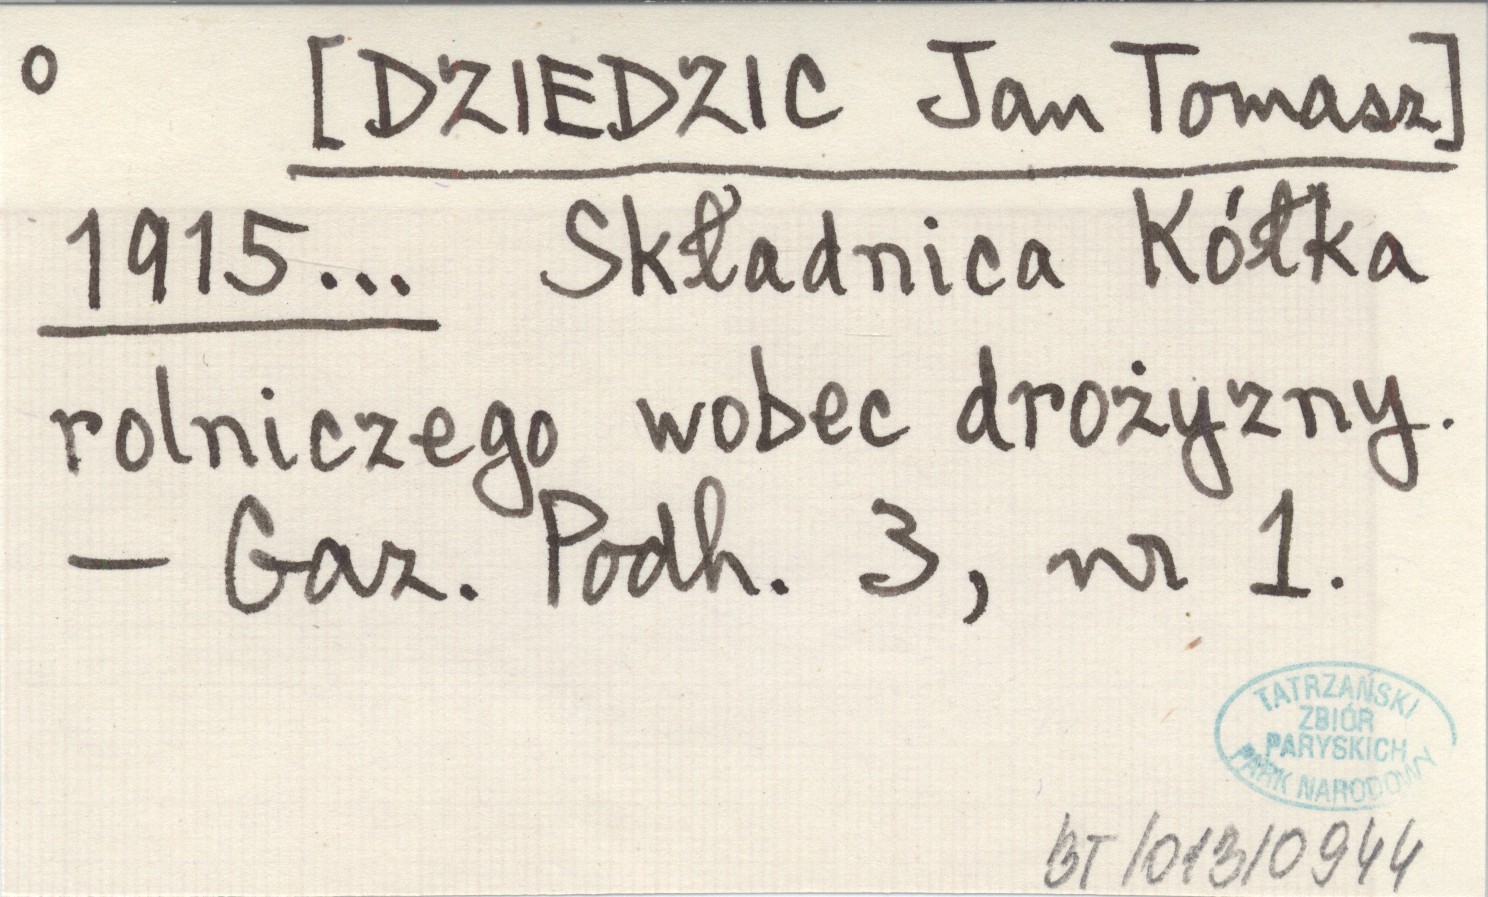 o [DZIEDZIC Jan Tomasz]
1915... Składnica Kółka
rolniczego wobec drożyzny.
— Gaz. Podh. 3, nr 1.
TATRZAŃSKI
ZBIÓR
PARYSKICH
PARK NARODOWY
BT/013/0944